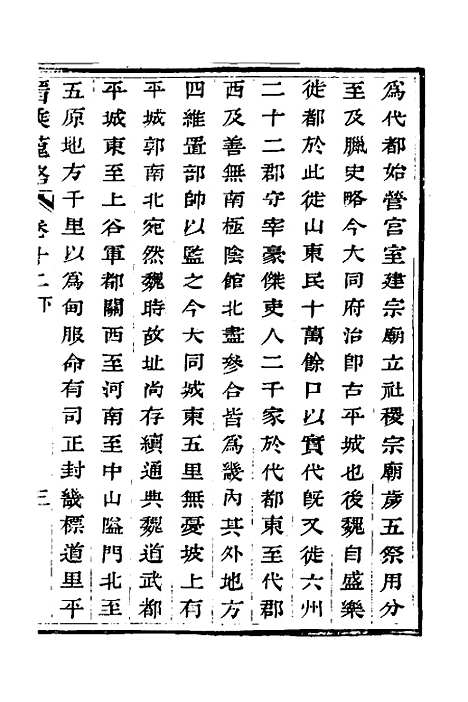 爲代都始營宫室建宗廟立社稷宗廟歲五祭用分
至及臘史略今大同府治即古平城也後魏自盛樂
徙都於此徙山東民十萬餘口以實代旣又徙六州
二十二郡守宰豪傑吏人二千家於代都東至代郡
西及善無南極陰館北盡參合皆爲畿內其外地方
四維置部帥以監之今大同城東五里無憂坡上有
平城郭南北宛然魏時故址尚存續通典魏道武都
平城東至上谷軍都關西至河南至中山隘門北至
五原地方千里以爲甸服命有司正封畿標道里平
晉乘蒐略 卷十二下 三